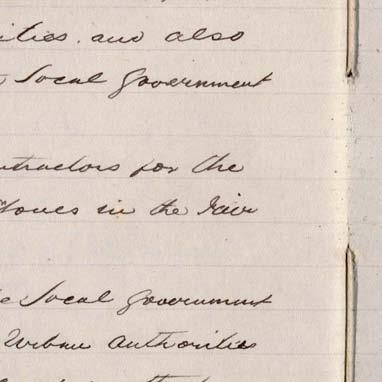 ities. and also
Local Government
ntractors for the
in the Fair
e Local Government
Urban Authorities